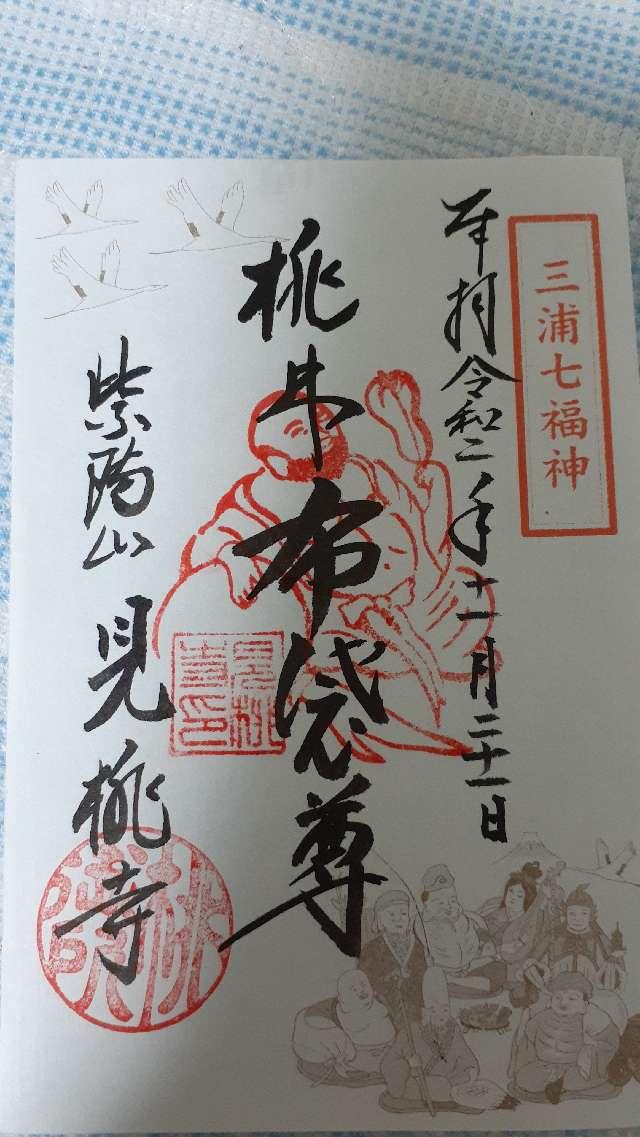 三浦七福神
奉拝令和二年十一月二十一日
桃林布袋尊
紫陽山 見桃寺